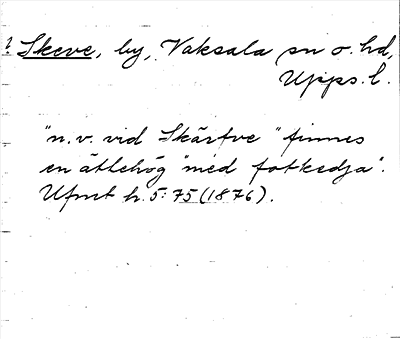 ? Skeve, by, Vaksala sn o. hd,
Upps. l.
"n.v. vid Skärfve" finnes
en ättehög "med fotkedja".
Ufmt h. 5: 75 (1876).